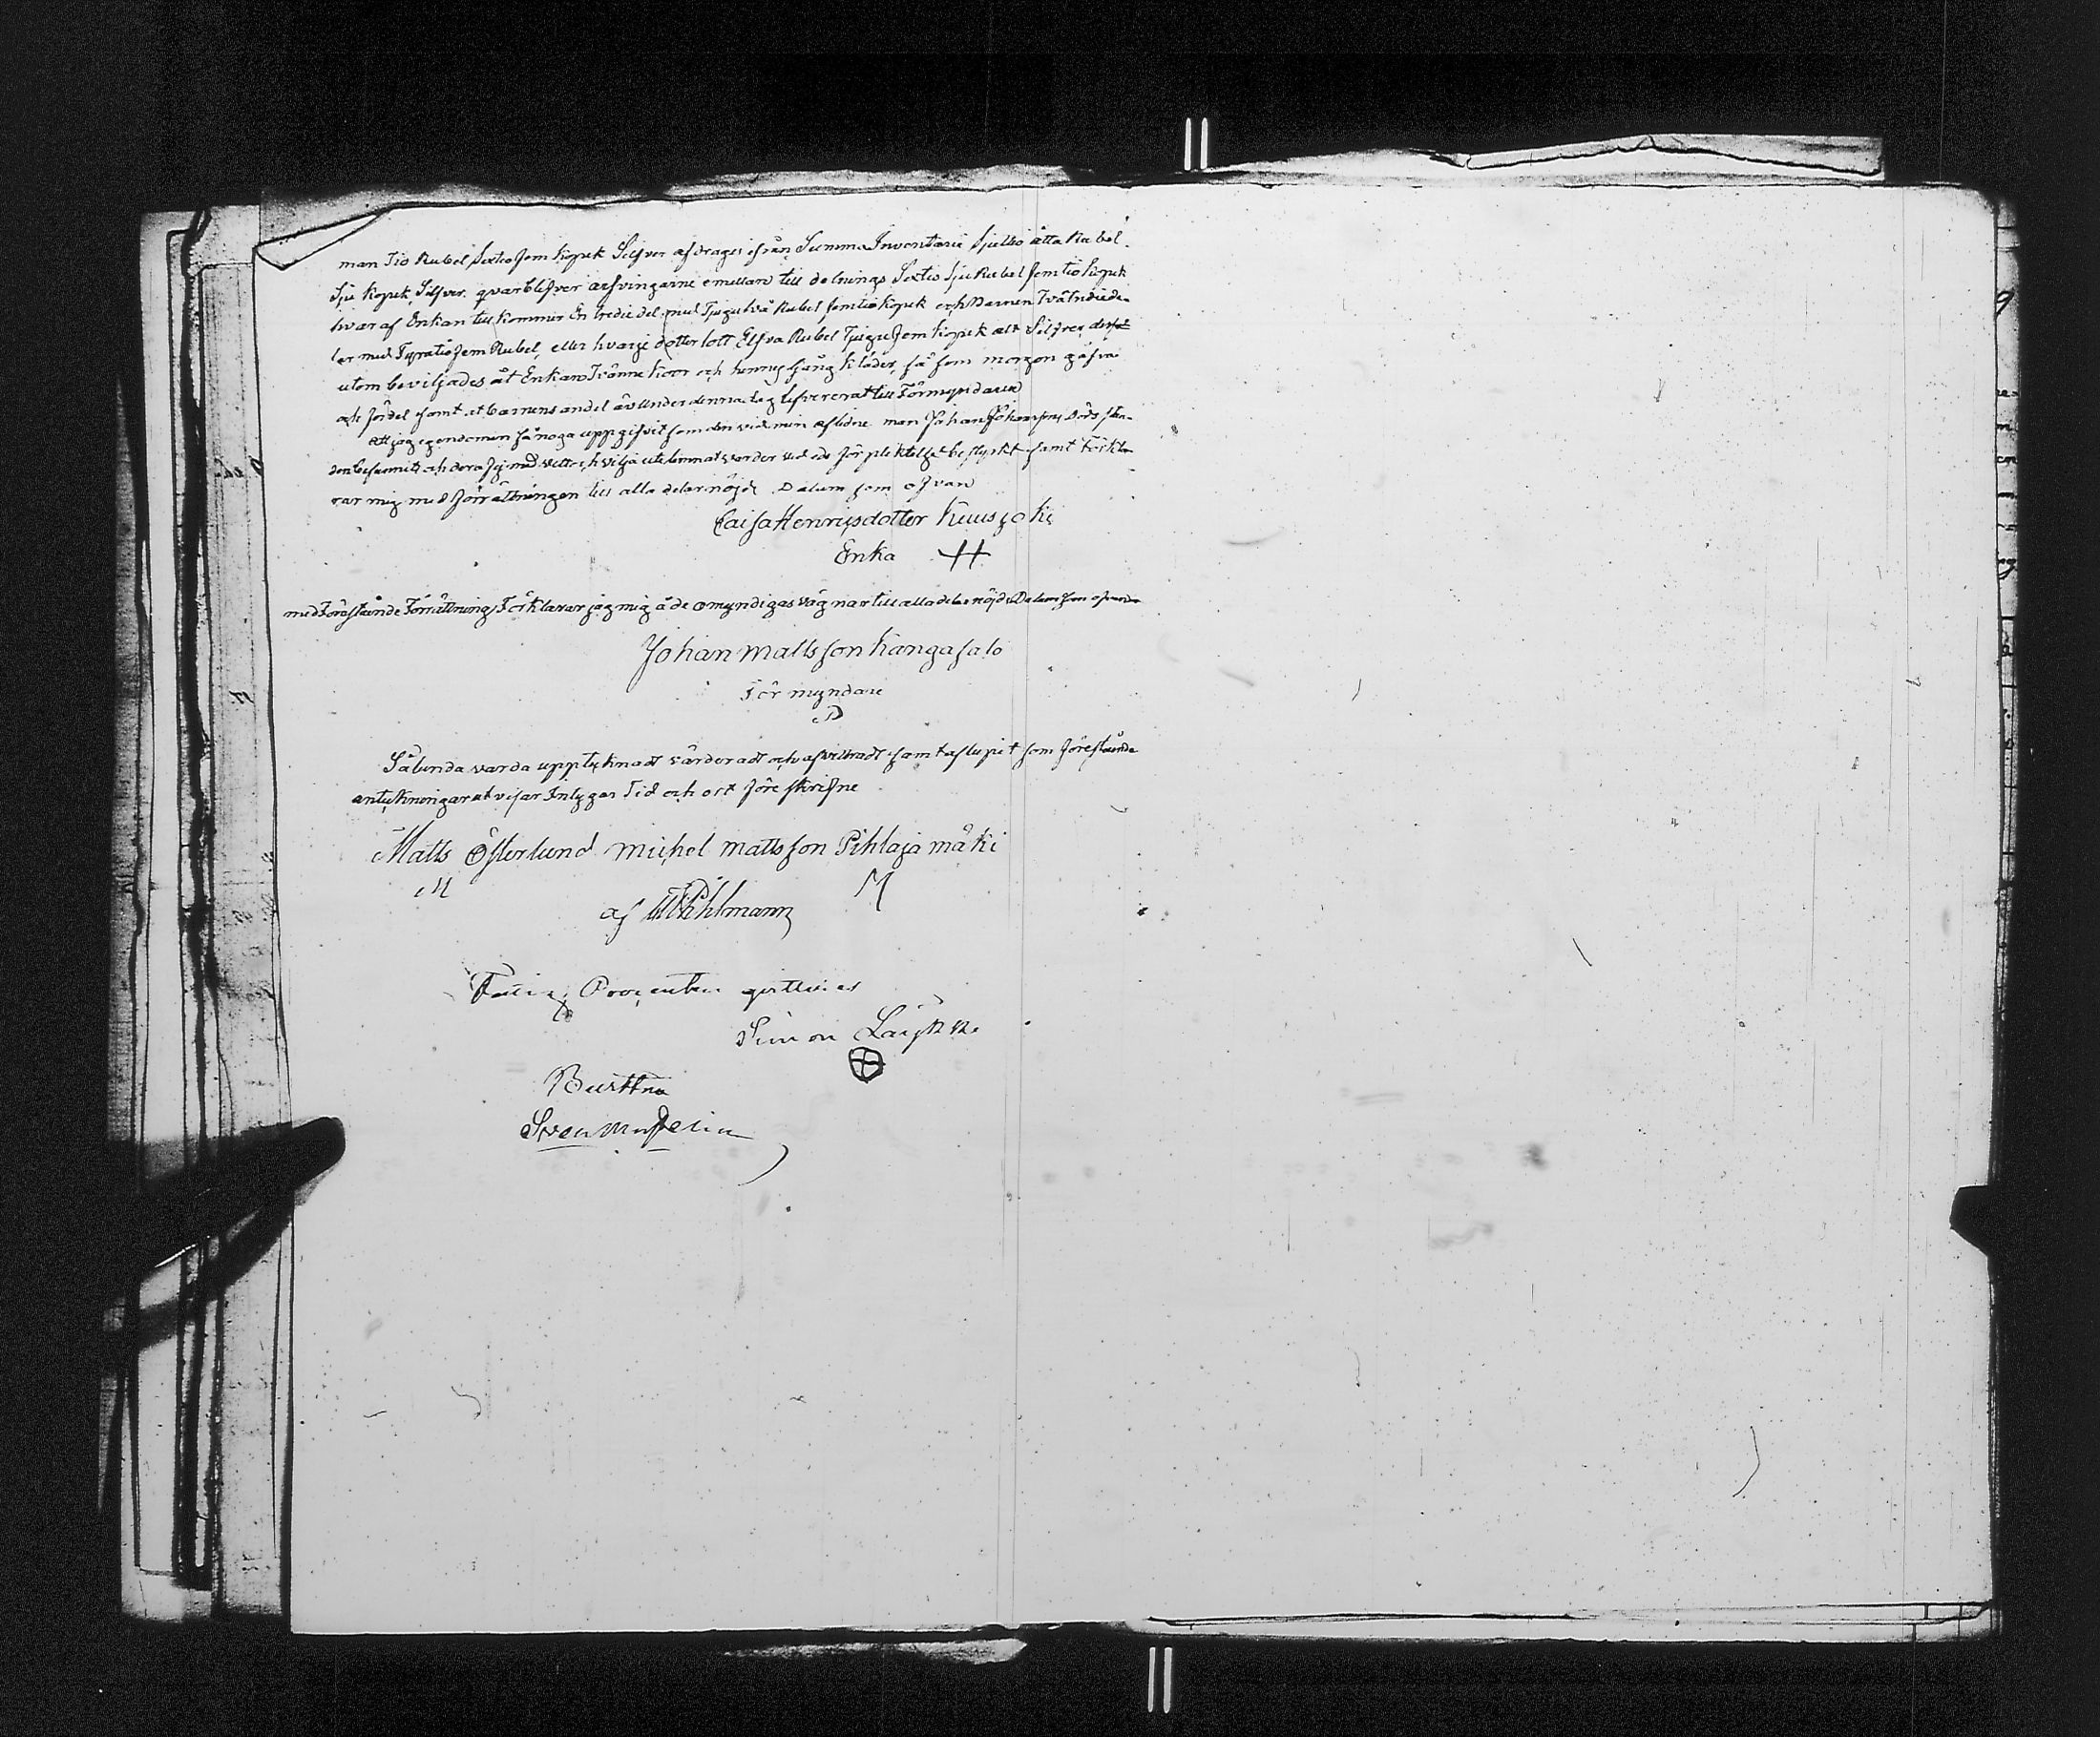 man Tio Rubel Sextio fem Kopek Silfver afdrages ifrån Summa Inventarii Sjuttio åtta Rubel
Sju Kopek Silfver. qvarblifver arfvingarne emellan till delnings Sextio sju Rubel femtio Kopek
hvar af Enkan till kommer En tredie del med Tjugutvå Rubel femtio Kopek och Barnen Två tredide-
lar med Fyratio fem Rubel, eller hvarje dotter lott Elfva Rubel Tjugu fem Kopek alt Silfver, desför
utom beviljades åt Enkan Tvänne Koor och hennes säng kläder, så som morgon gåfva
och fördel samt at barnens andel äv under denna dag lefvererat till Förmyndaren
Att jag egendomen så noga uppgifvit som den vid min aflidne man Johan Johanssons Döds stun-
den befunnits och dera Ej med vett och vilja utelemnat varder ved eds förpliktelse bestyrkt samt förkla-
rar mig med förrättningen till alla delar nöjd, Datum som ofvan
Caisa Henricsdotter Kuusjoki
Enka
med Föreståinde Förrättning Förklarar jag mig å de omyndigas vägnar till alla delar nöjd Datum som ofvan
Johan Mattsson Kangasalo
Förmyndare
Sålunda varda uppteknadt värderadt och afvittradt samt aflupit som föreståinde
antekningar utvisar Intygar Tid och ort föreskrifne
Matts Österlund Michel Mattsson Pihlajamäki
M M
af
Fattig Procenten qvitteras
Simon